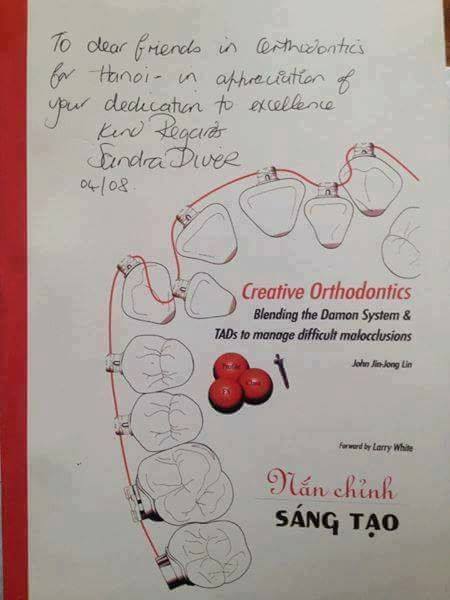 To dear friends in Orthodontics
for Hanoi - in appreciation of
your dedication to excellence
Kind Regards
Sandra Diver
04/08.
Creative Orthodontics
Blending the Damon System &
TADs to manage difficult malocclusions
John Jin-Jong Lin
Forward by Larry White
Nắn chỉnh
SÁNG TẠO